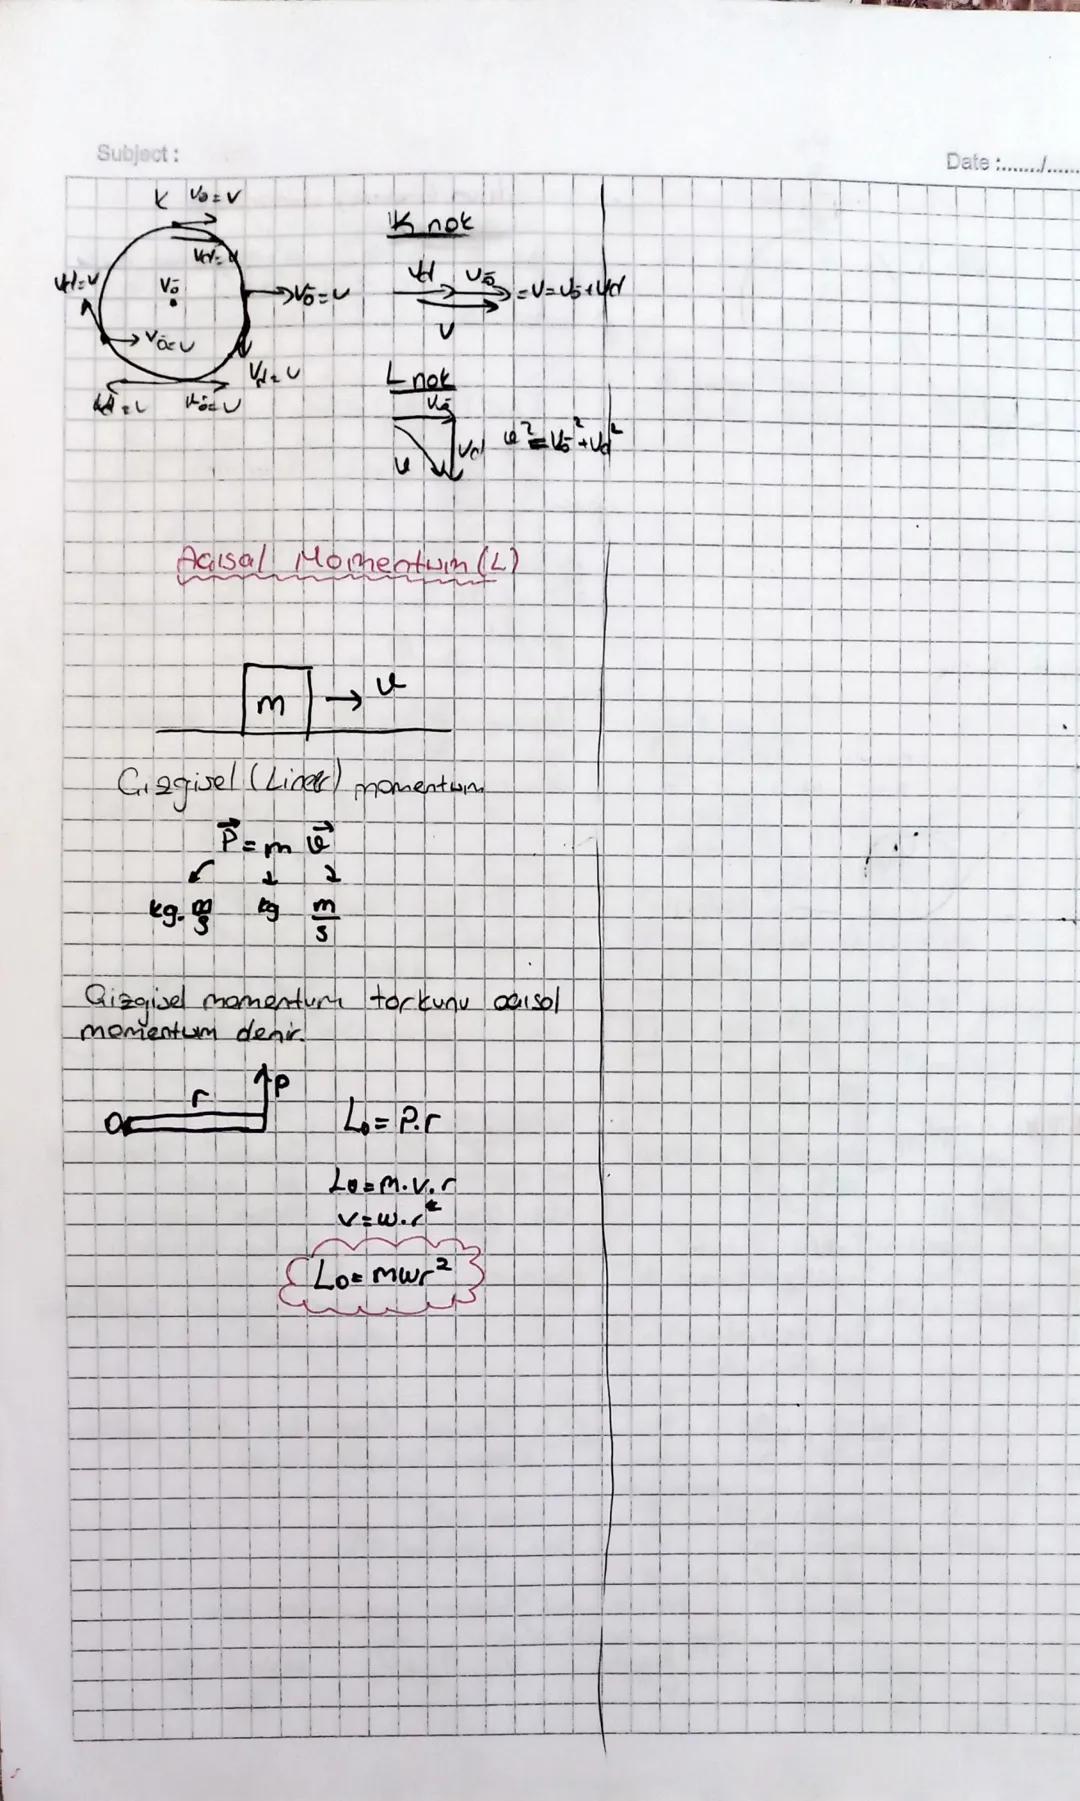 Subject :
Date :......../......
K Vö=V
Vd=V
Vd=V
Vö
Vö=V
Vö=V
Vd=V
Vd=V Vö=V
K nok
Vd Vö =V=Vö+Vd
V
L nok
Vö
Vd
V
V²=Vö²+Vd²
Açısal Momentum (L)
m
V
Çizgisel (Lineer) momentum
P = m V
kg.m/s kg m/s
Çizgisel momentum torkunu açısal
momentum denir.
r P
O
Lo = P.r
Lo=m.v.r
v=w.r
Lo= mwr²